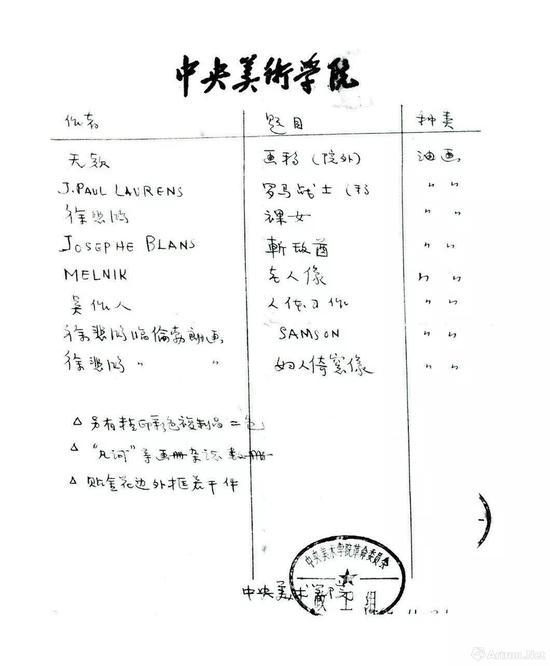 中央美術学院
作者 题目 种类
无款 画稿（院外） 油画
J.PAUL LAURENS 罗马战士（稿 〃 〃
徐悲鸿 裸女 〃 〃
JOSEPHE BLANS 斬敌酋 〃 〃
MELNIK 老人像 〃 〃
吴作人 人体习作 〃 〃
徐悲鸿临倫勃朗画 SAMSON 〃 〃
徐悲鸿 〃 〃 妇人倚窓像 〃 〃
△ 另有精印彩色複制品一包
△ 等画册杂志数册
△ 贴金花边外框若干件
中央美术学院革命委员会
中央美术学院
政工组
Artron.Net